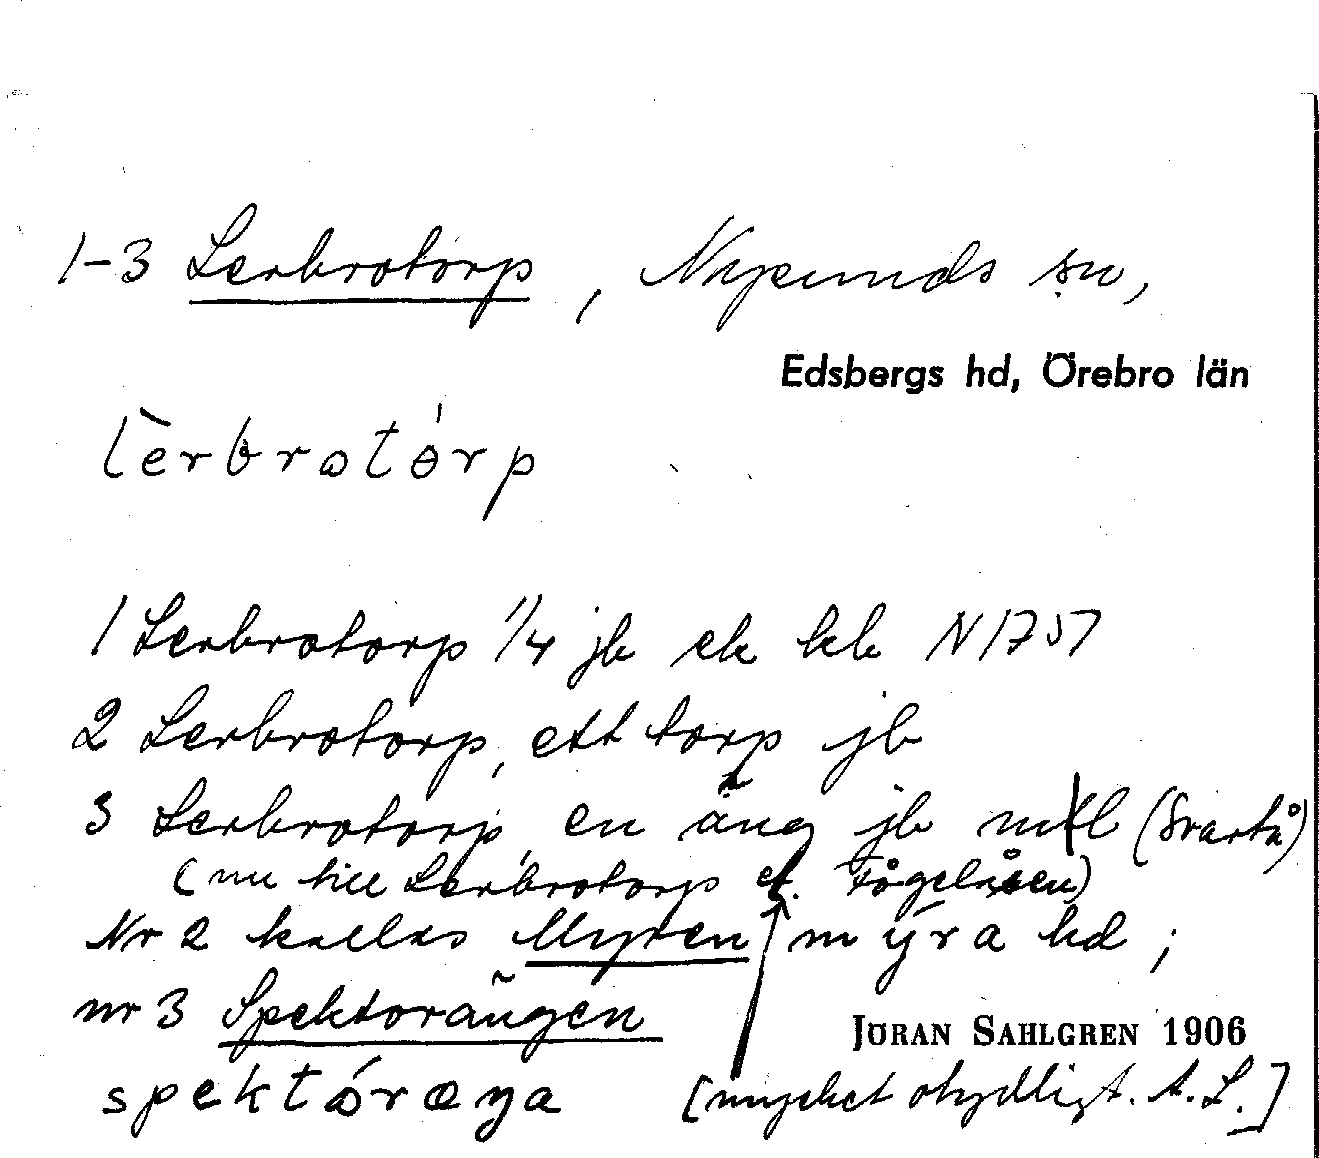 1-3 Lerbrotorp, Nysunds sn,
Edsbergs hd, Örebro län
lèrbrotórp
1 Lerbrotorp 1/4 jb ek kb N 1757
2 Lerbrotorp, ett torp jb
3 Lerbrotorp, en äng jb mtl (Svartå)
(nu till Lerbrotorp el. Fågelåsen)
Nr 2 kallas Myren mýra hd;
nr 3 Spektorängen
JÖRAN SAHLGREN 1906
spektóræŋa [mycket otydligt. A.L.]